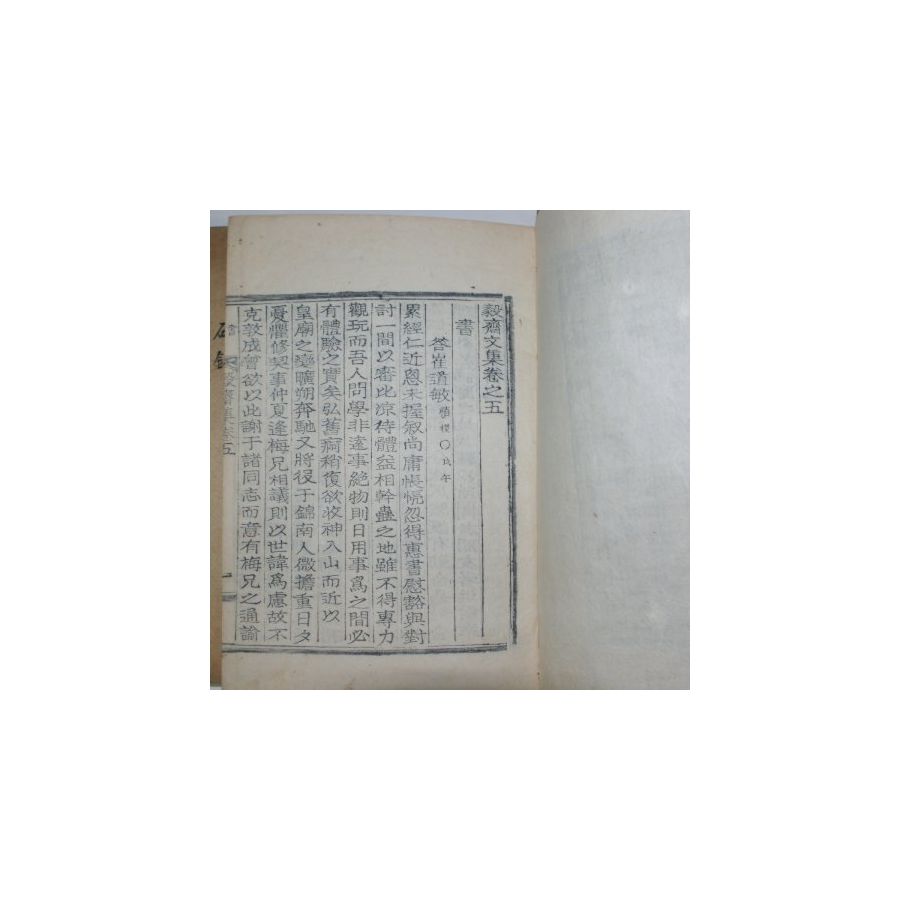 毅齋文集卷之五
書
答崔道敏 植模〇戊午
累經仁近恩未握叙尚庸悵怳忽得惠書慰豁與對
討一間以審比凉侍體益相幹蠱之地雖不得專力
觀玩而吾人問學非遠事絶物則日用事爲之間必
有體驗之實矣弘舊痾稍復欲收神入山而近以
皇廟之變曠朔奔馳又將役于錦南人微擔重日夕
憂懼修契事仲夏逢梅兄相議則以世諱爲慮故不
克敦成曾欲以此謝于諸同志而意有梅兄之通諭
書 毅齋集卷五
一